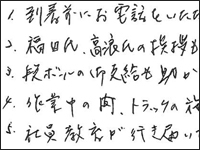 1. 到着前にお電話をいただ
2. 福田氏、高浪氏の挨拶も
3. 段ボールの即支給も助か
4. 作業中の雨、トラックの
5. 社員教育が行き届いて